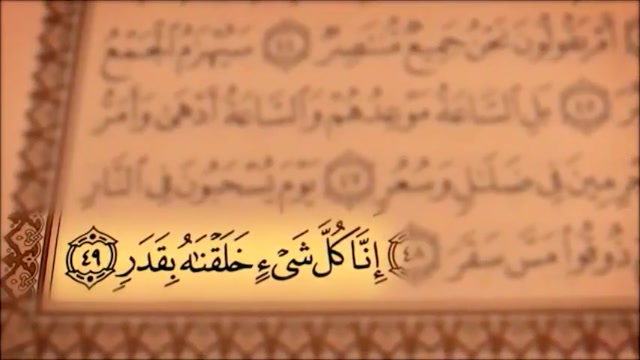 أَمْ يَقُولُونَ نَحْنُ جَمِيعٌ مُّنتَصِرٌ ٤٤ سَيُهْزَمُ ٱلْجَمْعُ
بَلِ ٱلسَّاعَةُ مَوْعِدُهُمْ وَٱلسَّاعَةُ أَدْهَىٰ وَأَمَرُّ
فِى ضَلَٰلٍ وَسُعُرٍ ٤٧ يَوْمَ يُسْحَبُونَ فِى ٱلنَّارِ
ذُوقُوا۟ مَسَّ سَقَرَ ٤٨ إِنَّا كُلَّ شَىْءٍ خَلَقْنَٰهُ بِقَدَرٍ ٤٩